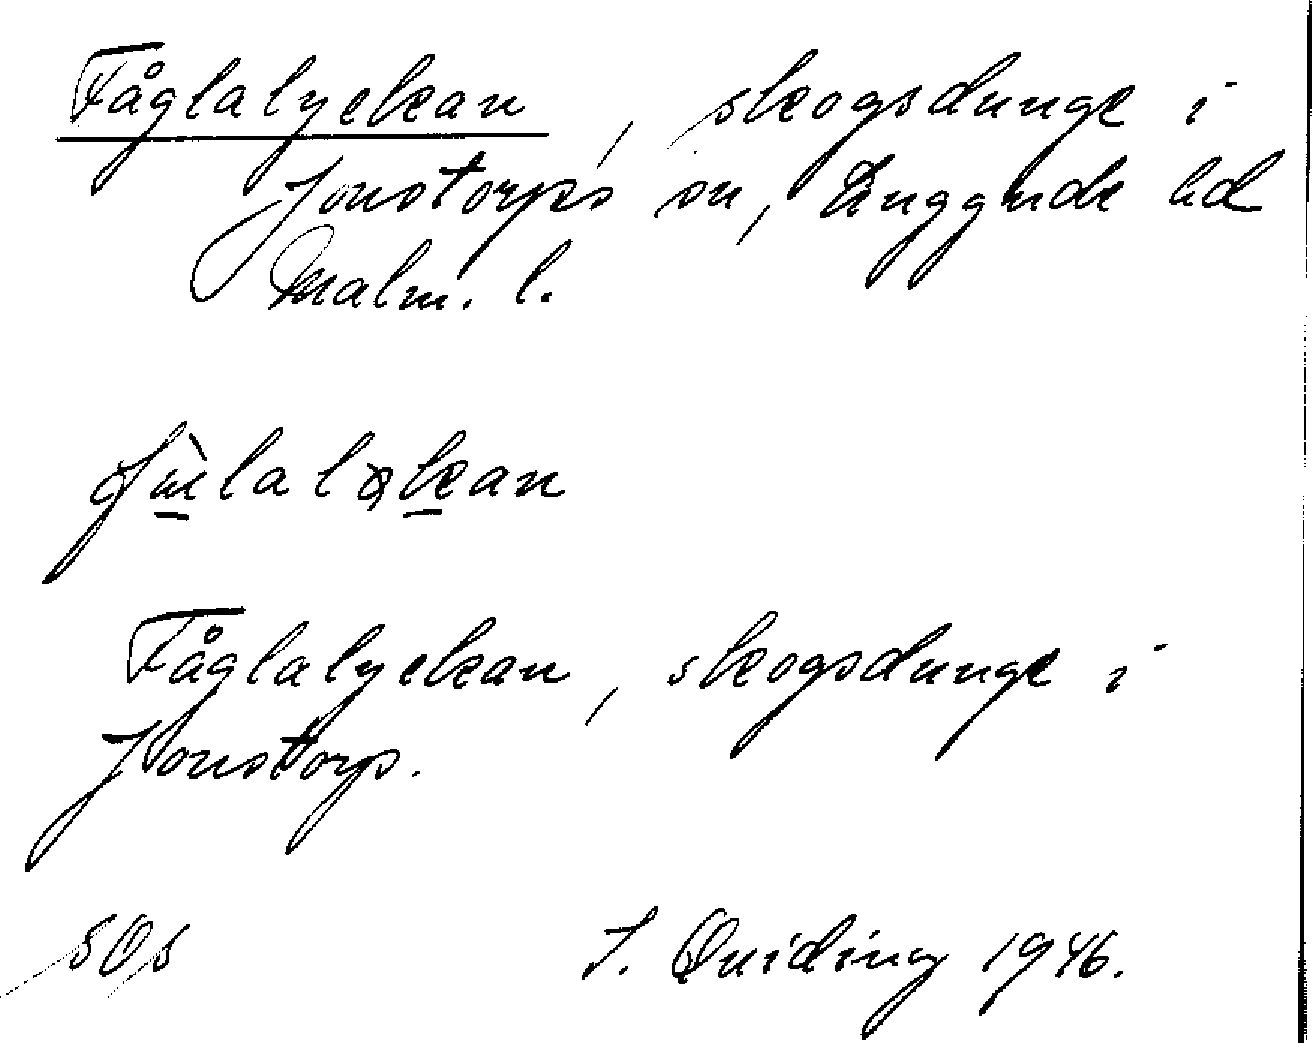 Fåglalyckan, skogsdunge i
Jonstorps sn, Luggude hd
Malm. l.
Fåglalyckan, skogsdunge i
Jonstorp.
sOs J. Quiding 1946.